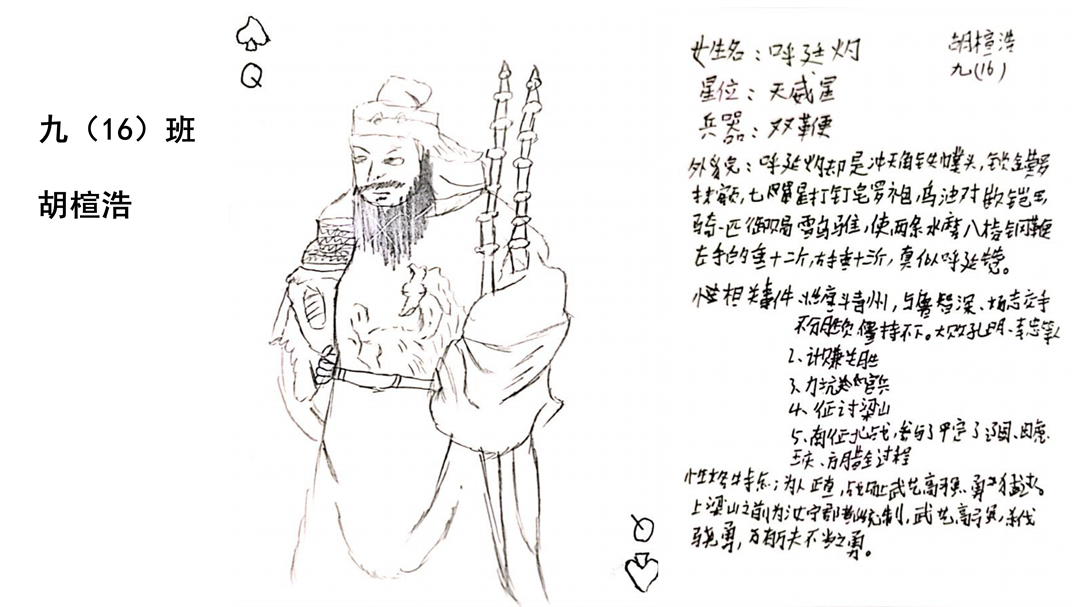 九（16）班
胡楦浩
Q
姓名：呼延灼
胡楦浩
九(16)
星位：天威星
兵器：双鞭
外貌：呼延灼却是冲天角铁幞头，锁金黄罗
抹额，七星打钉皂罗袍，乌油对嵌铠甲，
骑一匹御赐踢雪乌骓，使两条水磨八棱钢鞭
左手的重十二斤，右手重十三斤，真似呼延赞。
相关事件：1.青州，与鲁智深、杨志交手
不分胜负，僵持不下。大败孔明、李忠等人
2、计赚
3、力
4、征讨梁山
5、南征北战，参与了平定了辽国、田虎、
王庆、方腊全过程
性格特点：为人正直，武艺高强、勇猛
上梁山之前为汝宁郡都统制，武艺高强，杀伐
骁勇，有万夫不当之勇。
Q